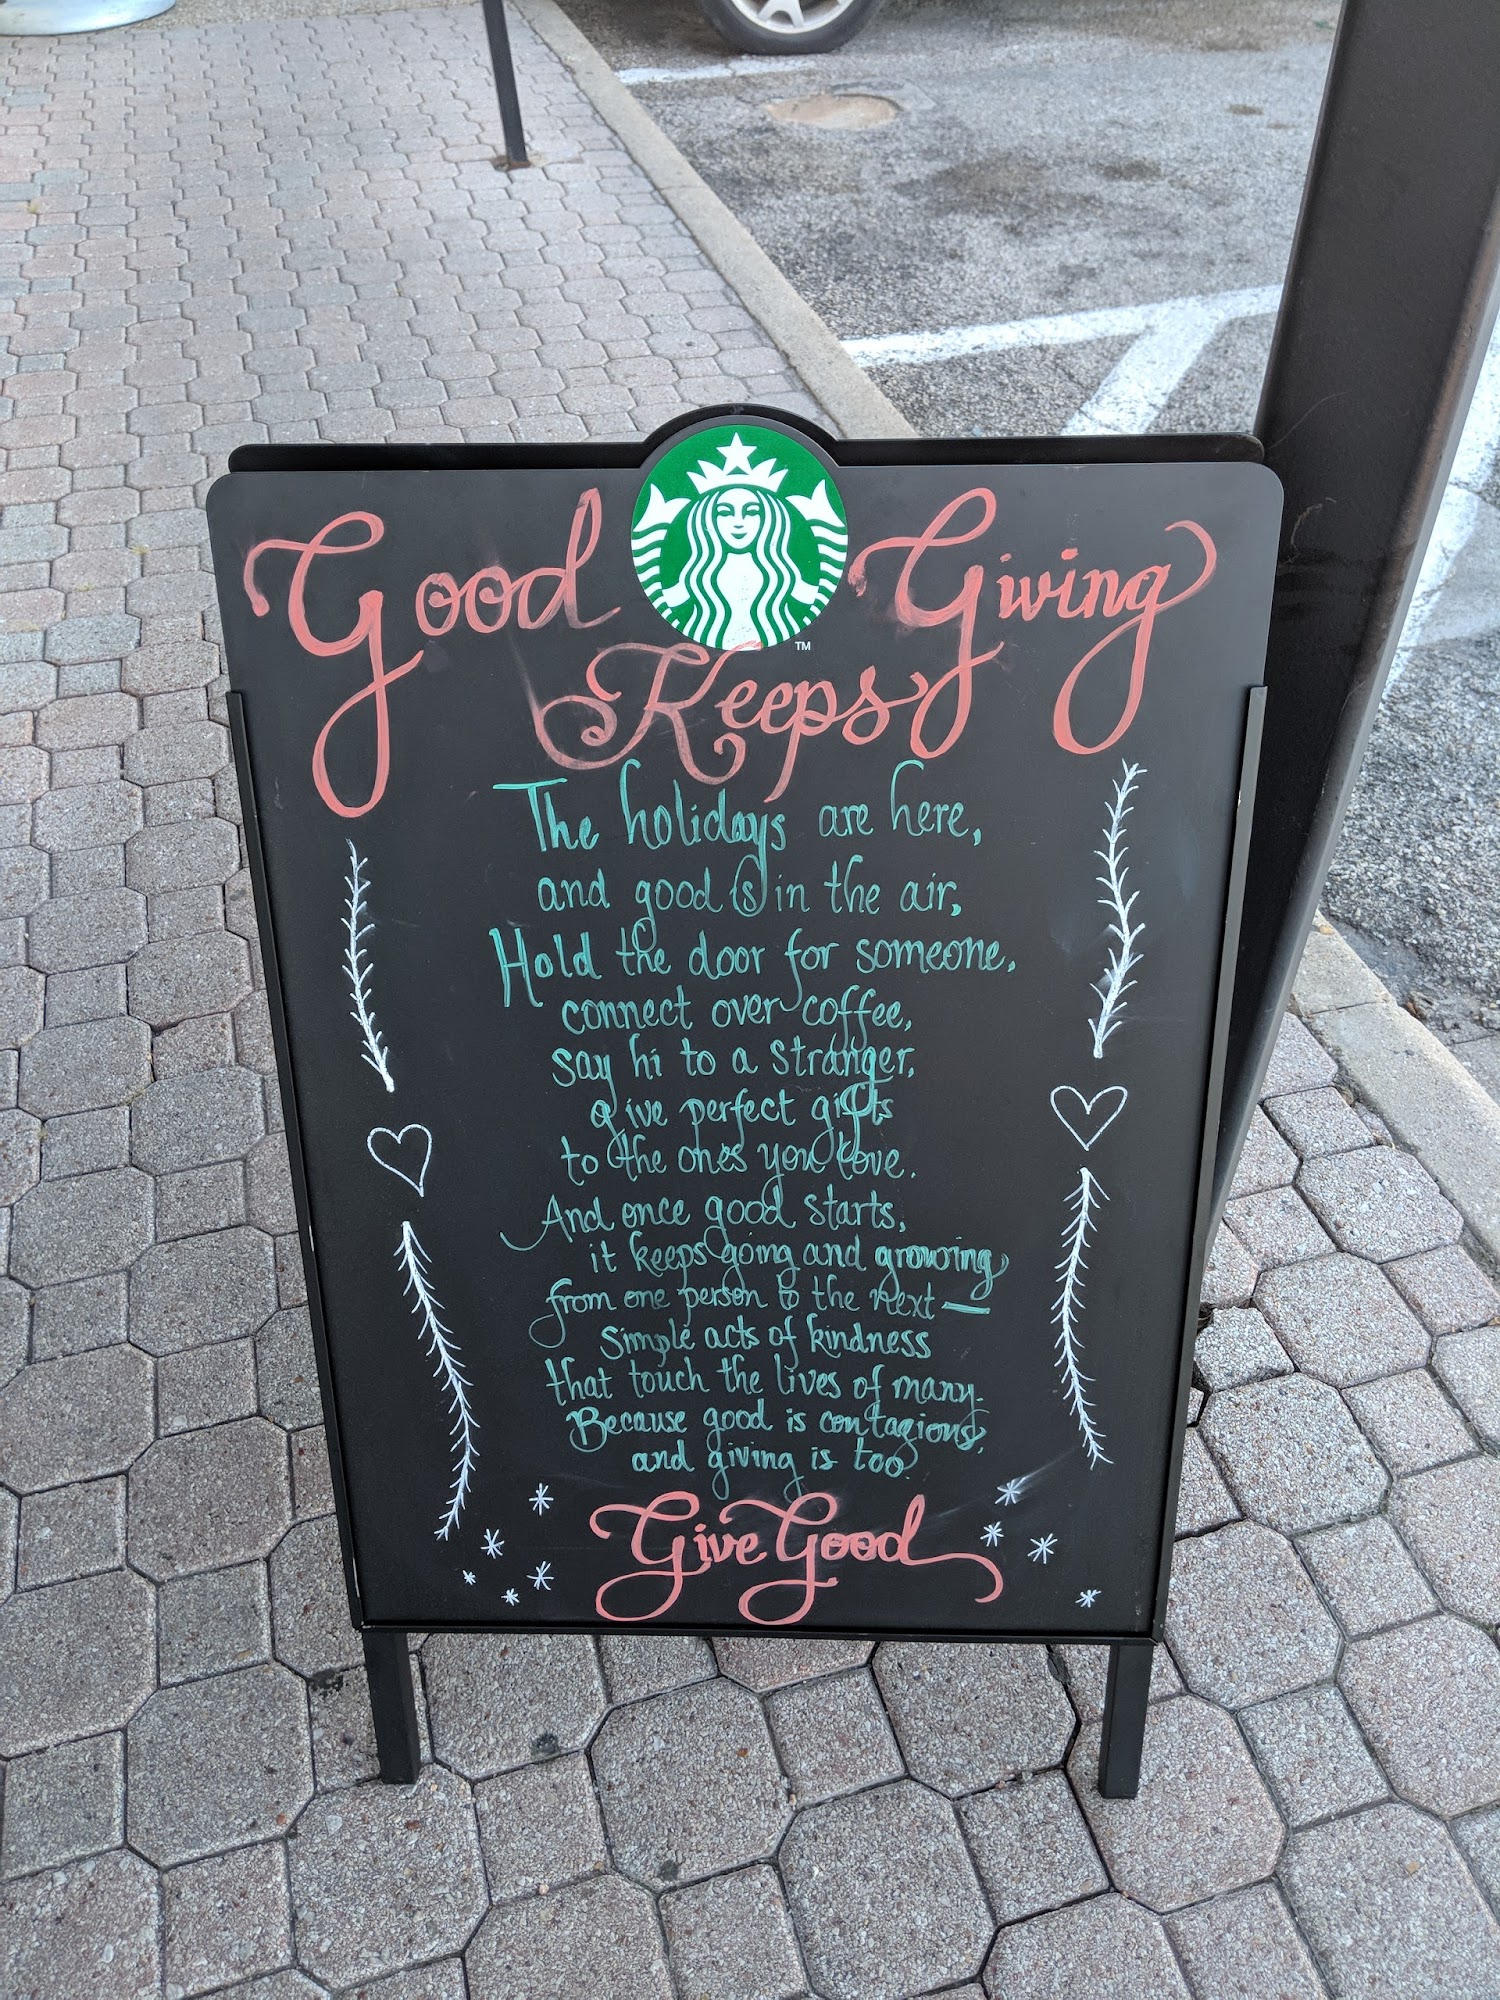 Good Giving
Keeps
TM
The holidays are here,
and good is in the air,
Hold the door for someone,
connect over coffee,
say hi to a stranger,
give perfect gifts
to the ones you love.
And once good starts,
it keeps going and growing
from one person to the next —
Simple acts of kindness
that touch the lives of many.
Because good is contagious,
and giving is too.
Give Good